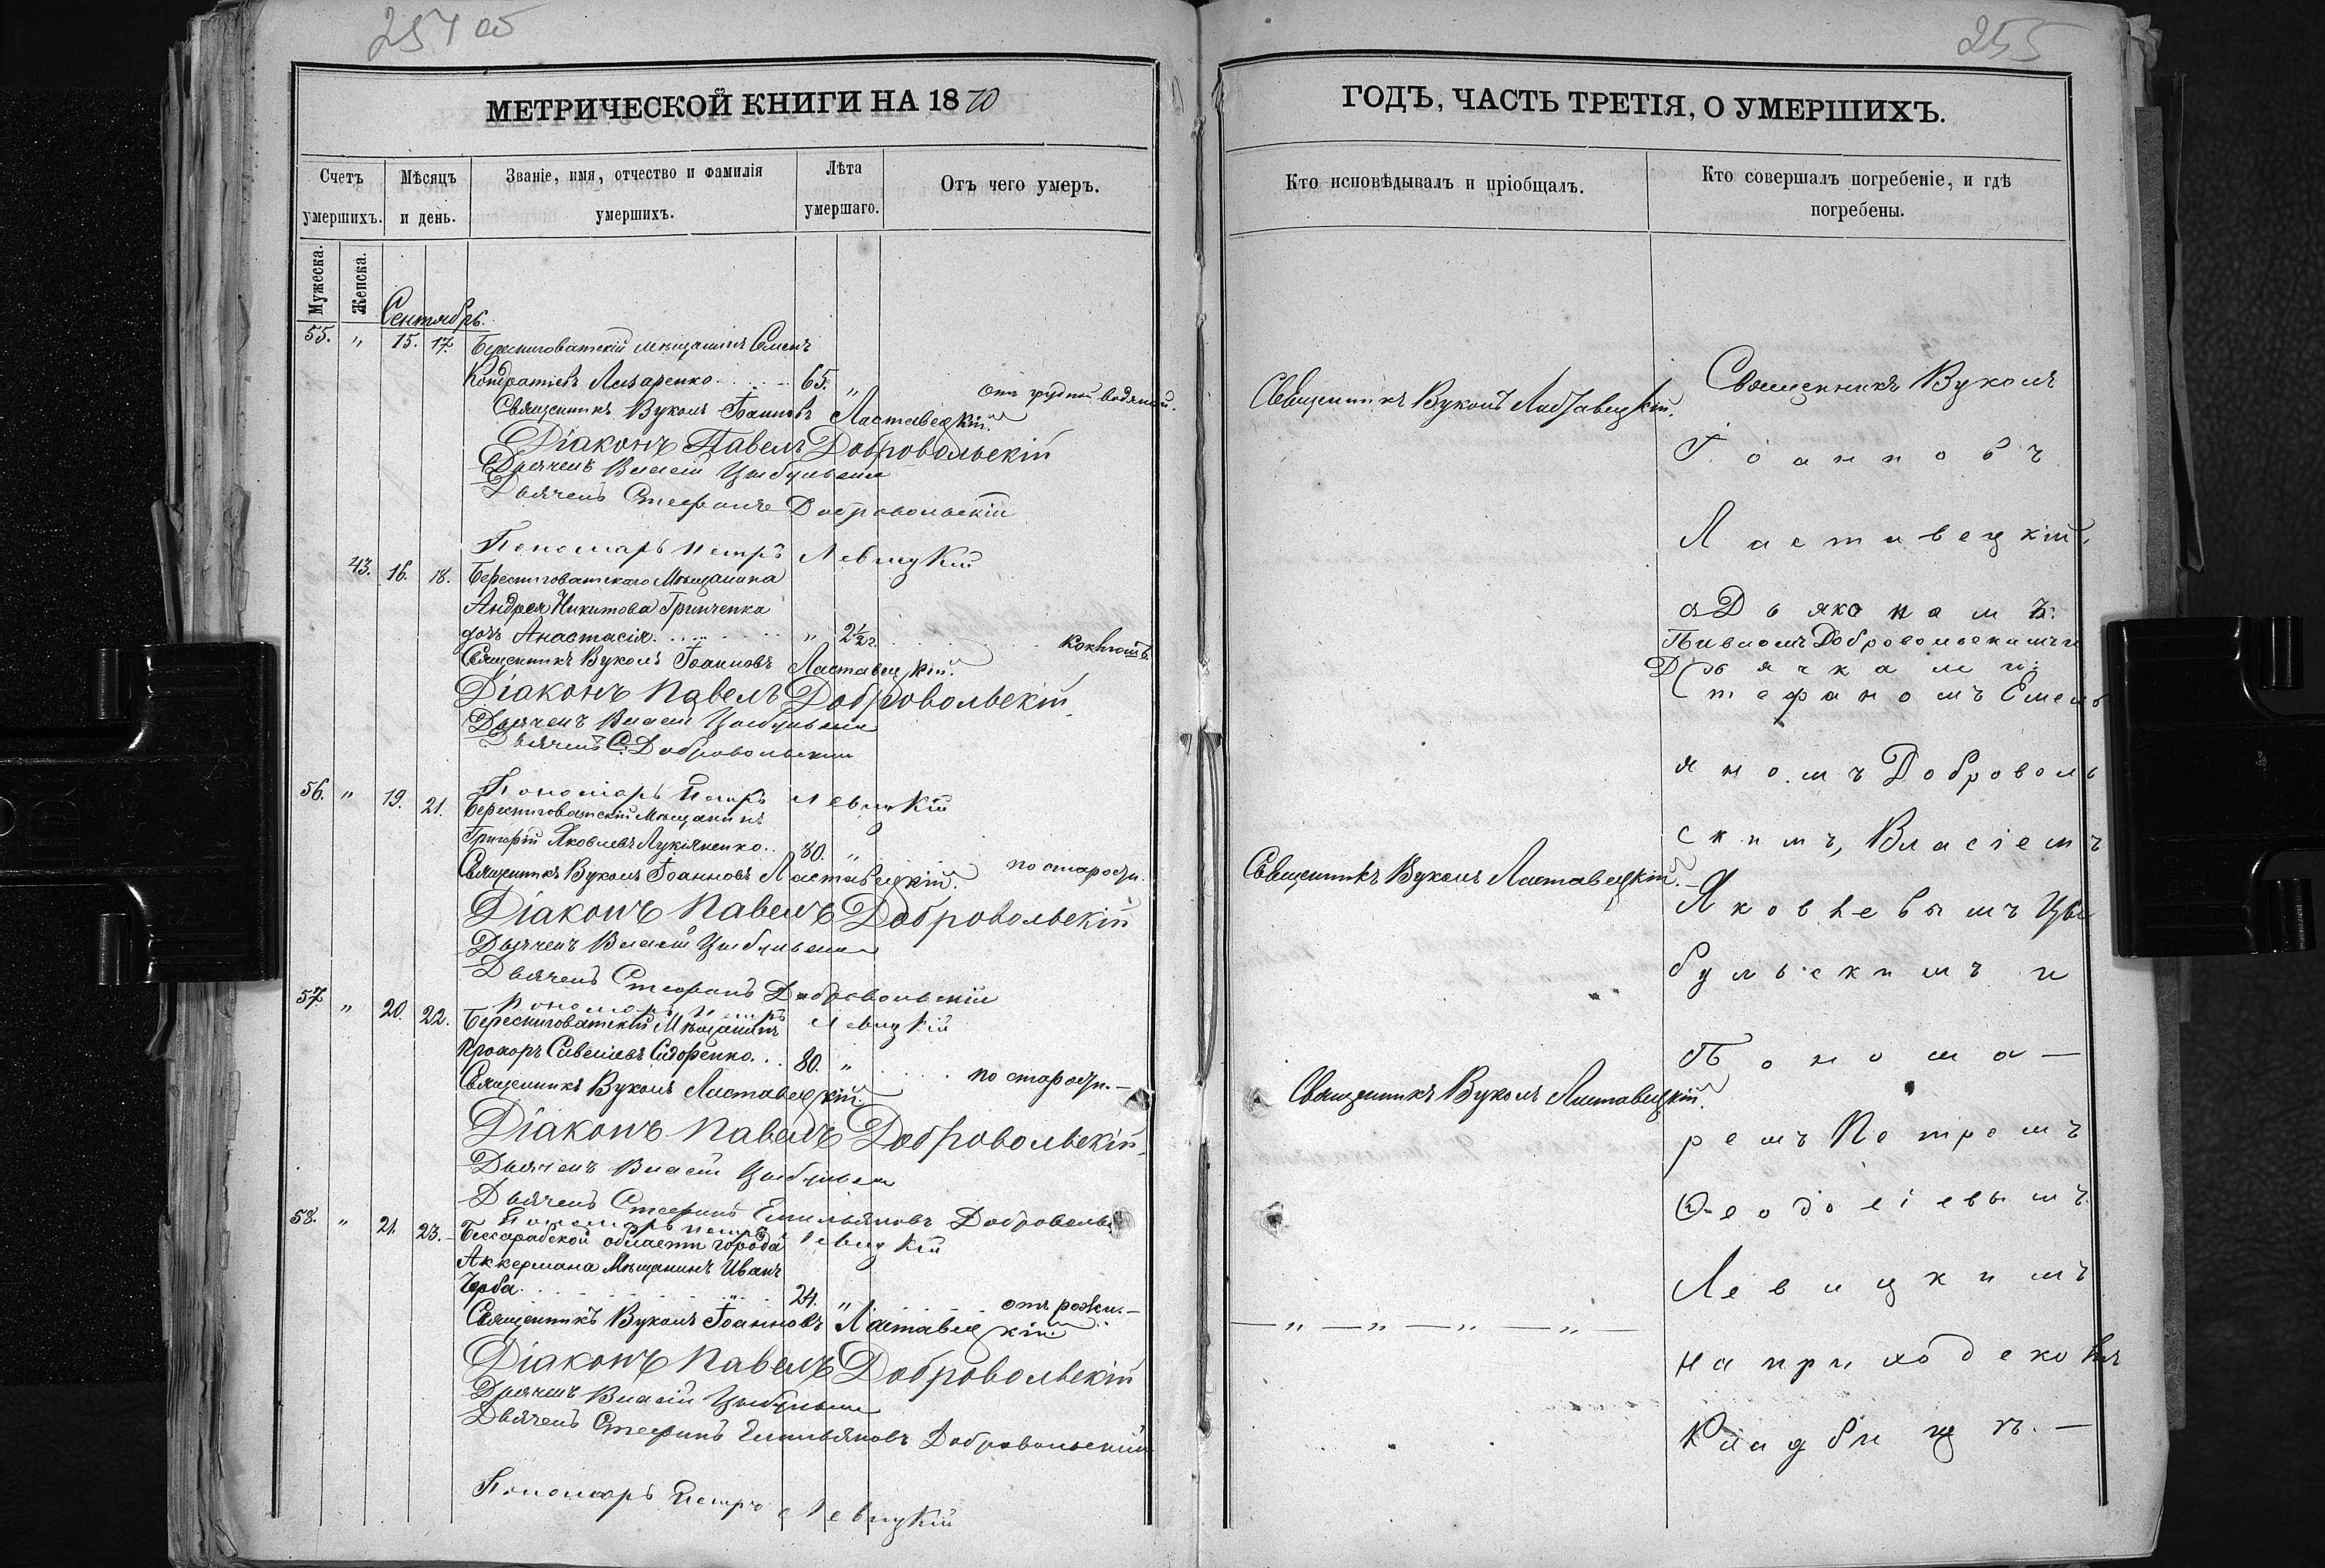 254 об
МЕТРИЧЕСКОЙ КНИГИ НА 1870
Счетъ умершихъ.
Мѣсяцъ и день.
Званіе, имя, отчество и фамилія умершихъ.
Лѣта умершаго.
Отъ чего умеръ.
Мужеска.
Женска.
Сентябрь.
55. " 15. 17. Берестоватскій мѣщанинъ Семенъ
Кондратіевъ Лизаренко 65. " отъ грудной водяной.
Священникъ Вуколъ Іоанновъ Ластавецкій.
Діаконъ Павелъ Добровольскій
Дьячекъ Власій Цыбульскій
Дьячекъ Стефанъ Добровольскій
Пономарь Петръ Левицкій
43. 16. 18. Берестоватскаго Мѣщанина
Андрея Никитова Гринченка
дочь Анастасія " 2½ г. коклюшъ.
Священникъ Вуколъ Іоанновъ Ластавецкій.
Діаконъ Павелъ Добровольскій.
Дьячекъ Власій Цыбульскій
Дьячекъ С. Добровольскій
Пономарь Петръ Левицкій
56. " 19. 21. Берестоватскій Мѣщанинъ
Григорій Яковлевъ Лукіяненко.. 80. " по старости.
Священникъ Вуколъ Іоанновъ Ластавецкій.
Діаконъ Павелъ Добровольскій
Дьячекъ Власій Цыбульскій
Дьячекъ Стефанъ Добровольскій
Пономарь Петръ Левицкій
57. " 20. 22. Берестоватскій Мѣщанинъ
Прохоръ Савельевъ Сидоренко. . 80. " по старости.—
Священникъ Вуколъ Ластавецкій.
Діаконъ Павелъ Добровольскій.
Дьячекъ Власій Цыбульскій
Дьячекъ Стефанъ Емильяновъ Добровольс
Пономарь Петръ Левицкій
58. " 21. 23. Бессарабской области города
Аккермана Мѣщанинъ Иванъ
Черба. 24. " отъ рожи.—
Священникъ Вуколъ Іоанновъ Ластавецкій
Діаконъ Павелъ Добровольскій
Дьячекъ Власій Цыбульскій
Дьячекъ Стефанъ Емильяновъ Добровольскій
Пономарь Петръ Левицкій
255
ГОДЪ, ЧАСТЬ ТРЕТІЯ, О УМЕРШИХЪ.
Кто исповѣдывалъ и пріобщалъ.
Кто совершалъ погребеніе, и гдѣ погребены.
Священникъ Вуколъ Ластавецкій.
Священникъ Вуколъ Ластавецкій.—
Священникъ Вуколъ Ластавецкій.
— " — " — " — " —
Священникъ Вуколъ
Іоанновъ
Ластавецкій,
съ Дьякономъ:
Павломъ Добровольскимъ и
Дьячками:
Стефаномъ Емель
яномъ Доброволь
скимъ, Власіемъ
Яковлевымъ Цы
бульскимъ и
Понома—
ремъ Петромъ
Ѳеодосіевымъ
Левицкимъ
на приходскомъ
Кладбищѣ.—